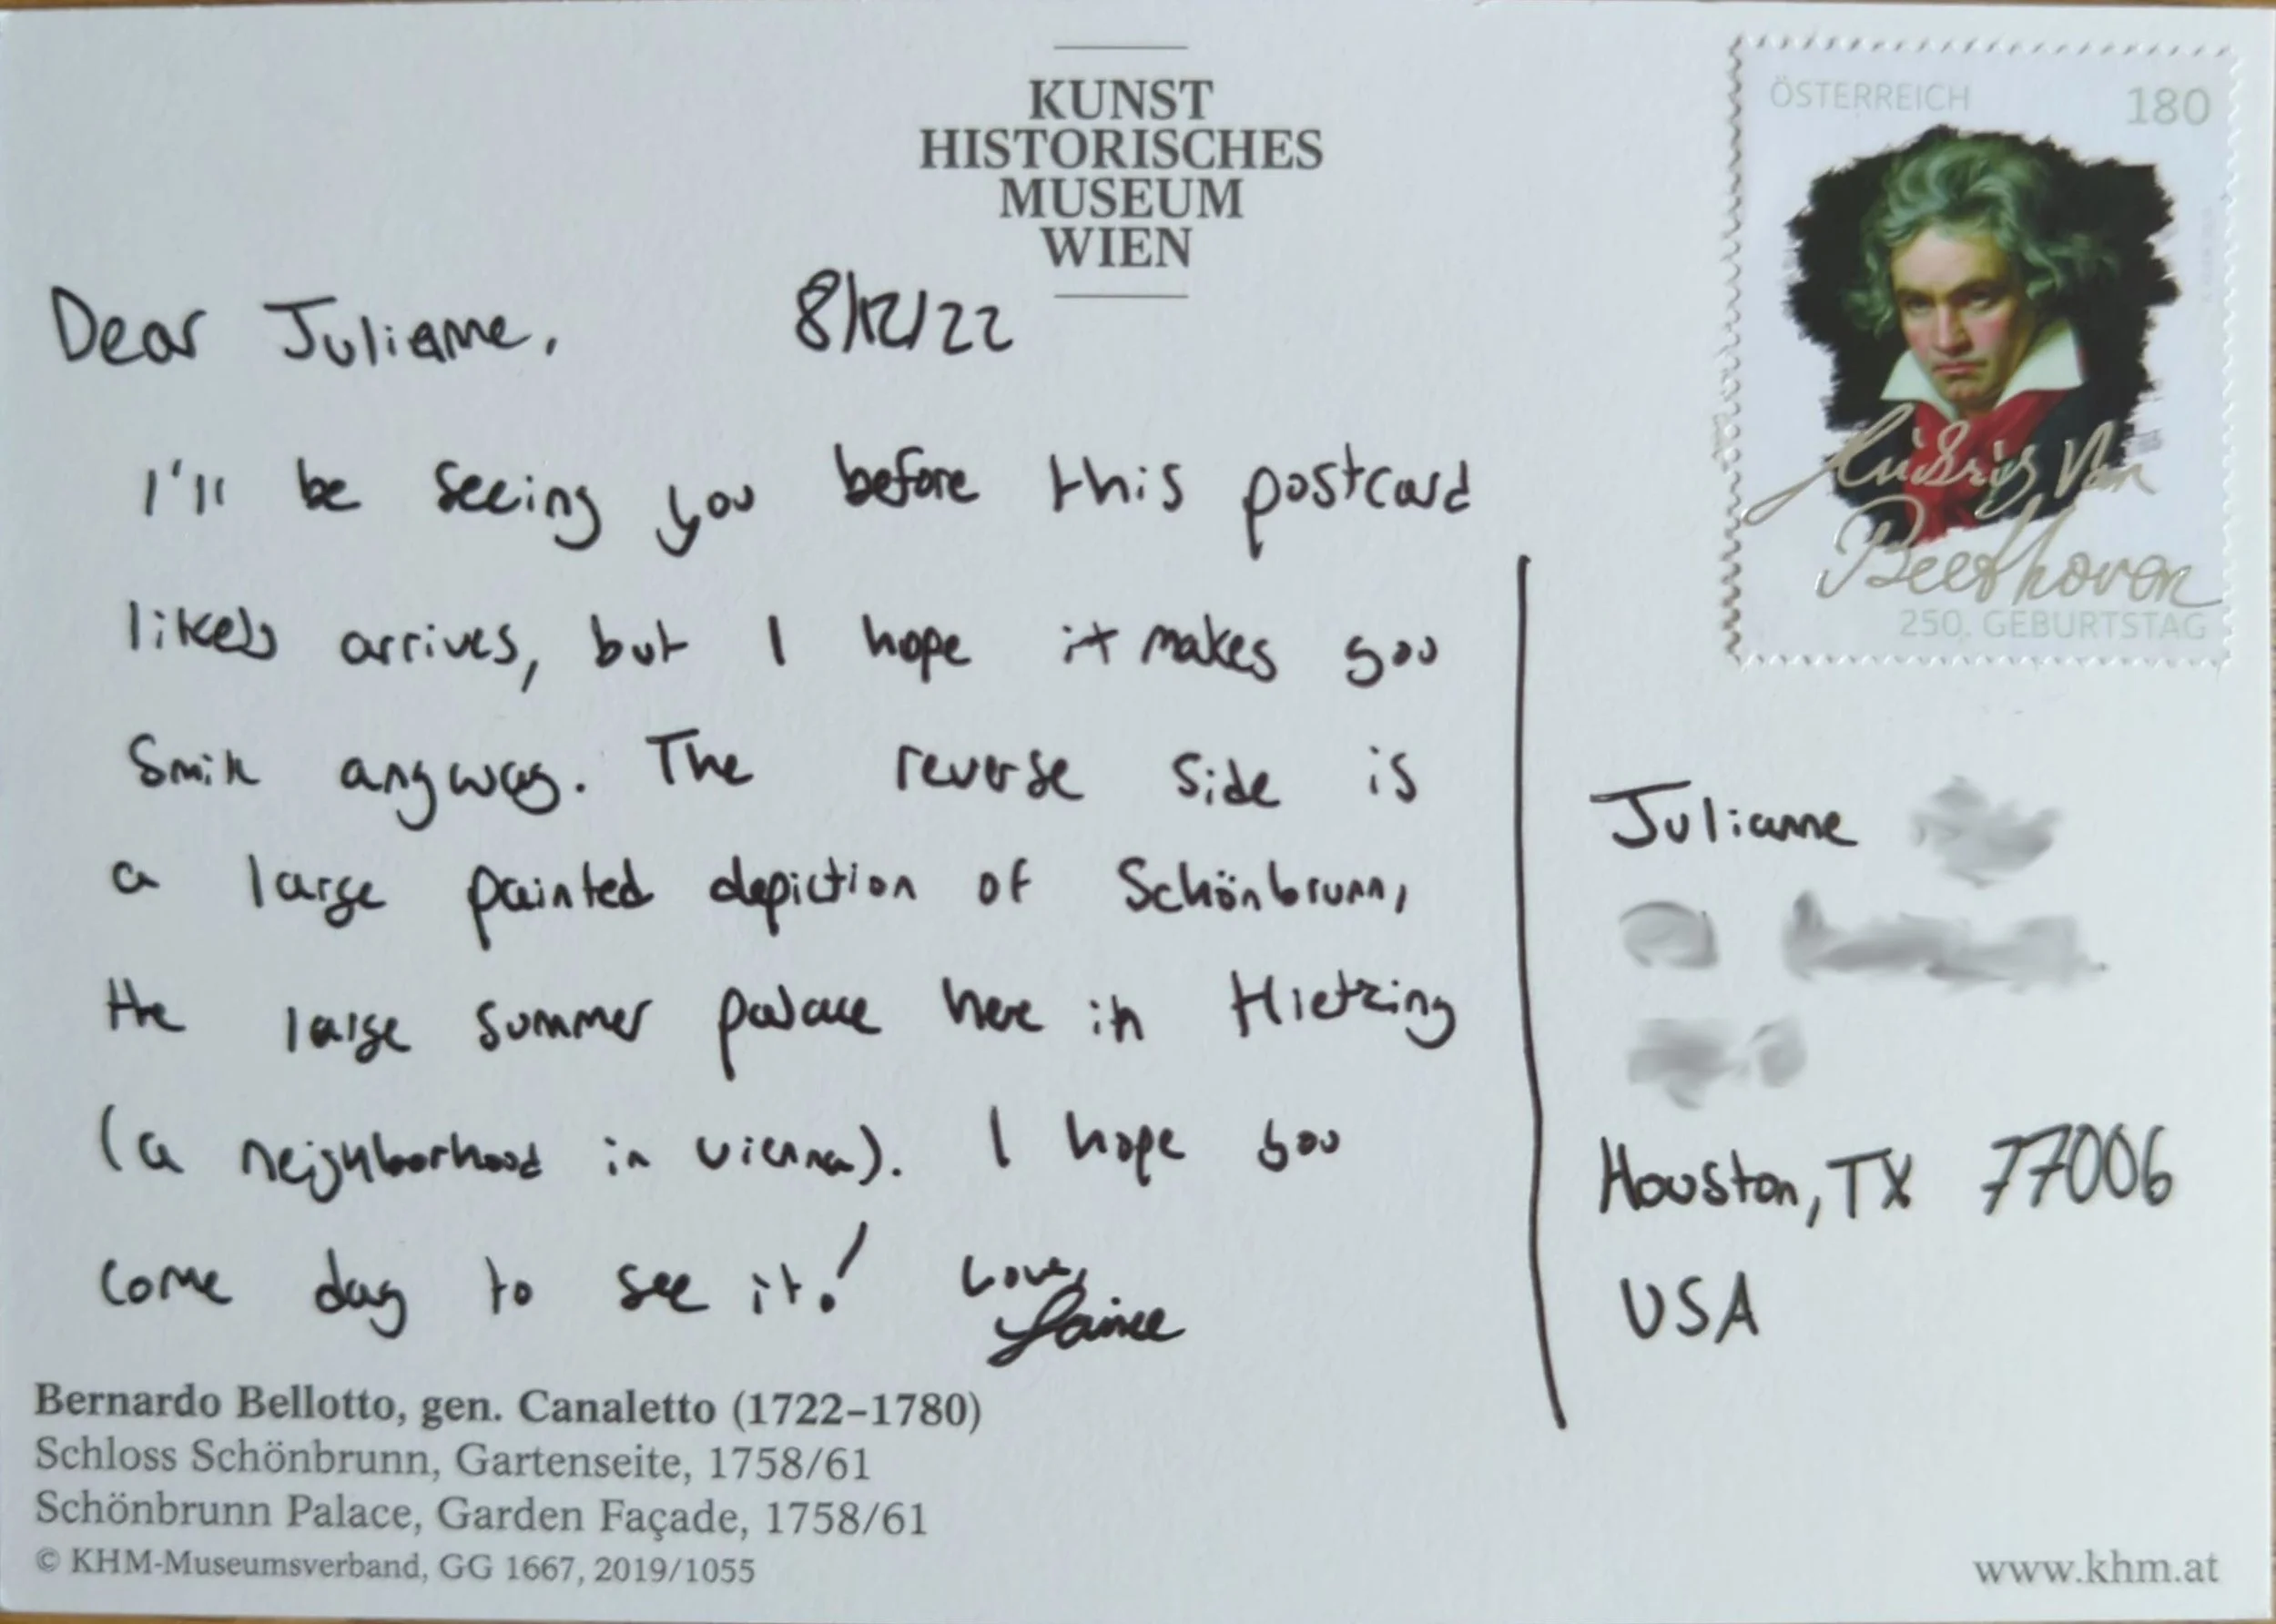 KUNST
HISTORISCHES
MUSEUM
WIEN
ÖSTERREICH 180
Ludwig Van
Beethoven
250. GEBURTSTAG
Dear Julianne, 8/12/22
I'll be seeing you before this postcard
likely arrives, but I hope it makes you
smile anyway. The reverse side is
a large painted depiction of Schönbrunn,
the large summer palace here in Hietzing
(a neighborhood in Vienna). I hope you
come day to see it! Love,
Julianne
Houston, TX 77006
USA
Bernardo Bellotto, gen. Canaletto (1722–1780)
Schloss Schönbrunn, Gartenseite, 1758/61
Schönbrunn Palace, Garden Façade, 1758/61
© KHM-Museumsverband, GG 1667, 2019/1055
www.khm.at